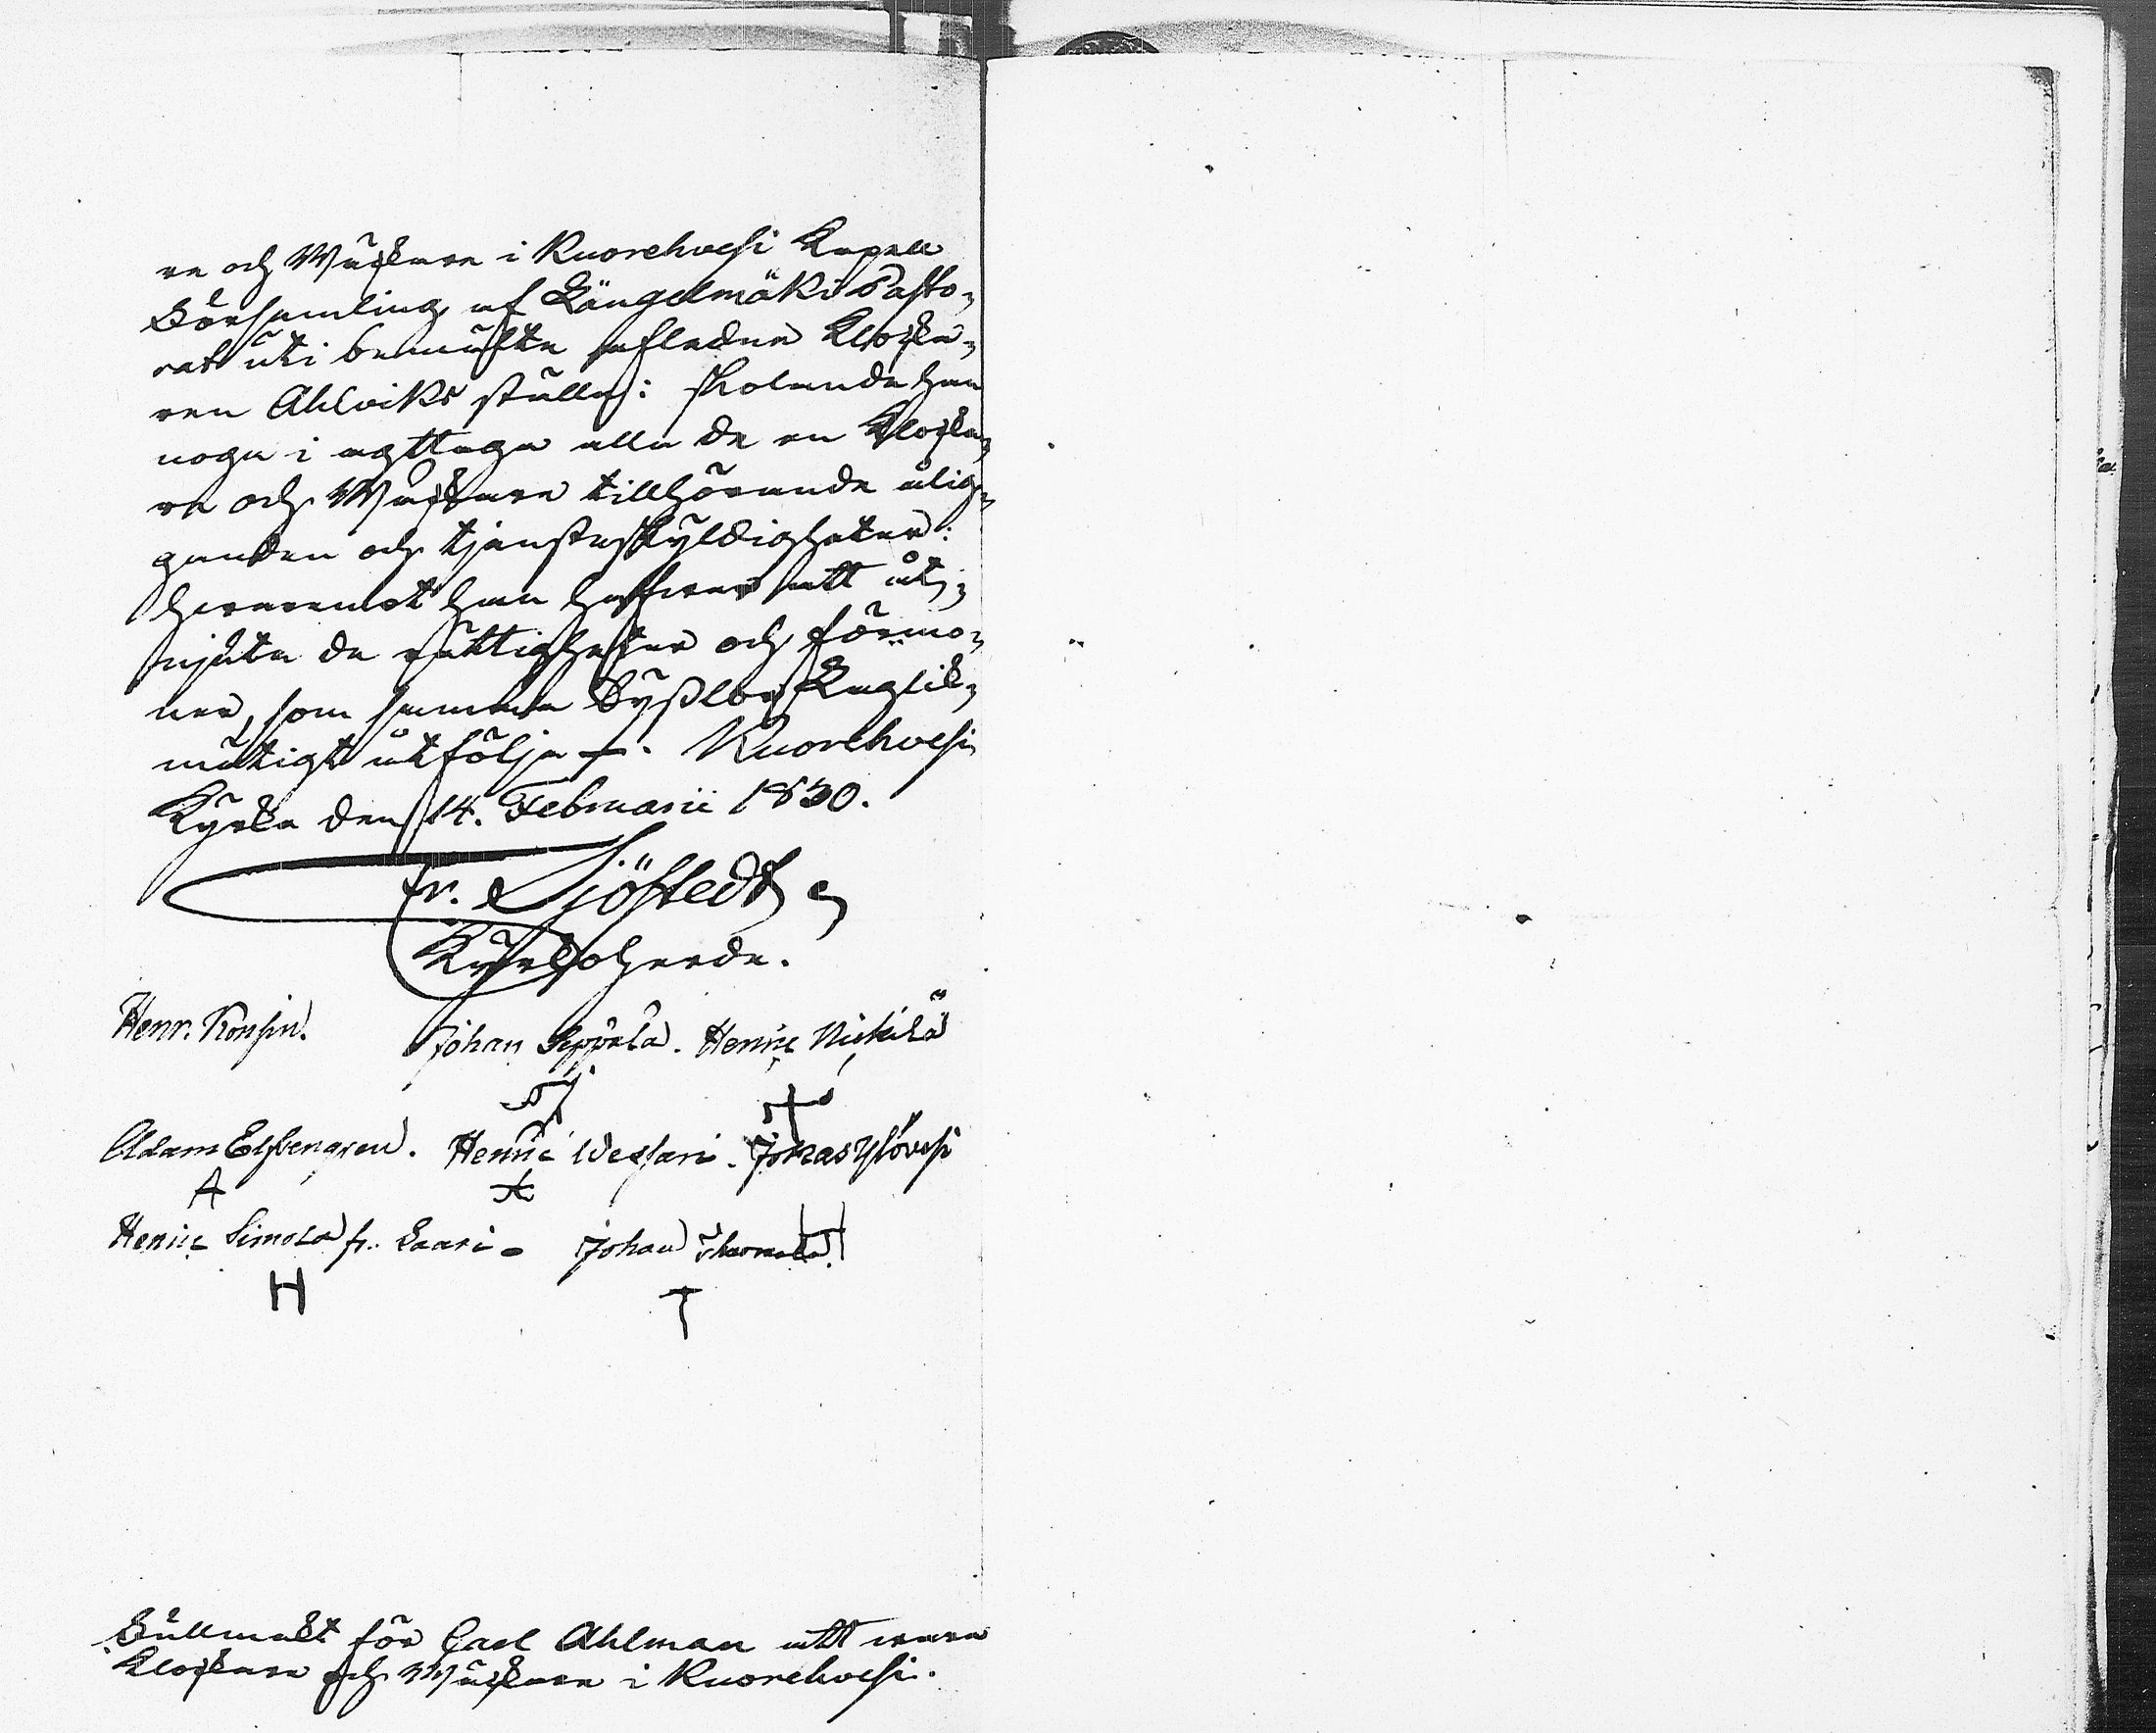 re och Wäckare i Kuorehvesi Kapell
Församling af Längelmäki Pasto-
rat uti bemälte afledne Klocka-
ren Ahlviks ställe: skolande han
noga i agttaga alla de en Klocka-
re och Wäckare tillhörande ålig-
ganden och tjensteskyldigheter:
hvaremot han hafver att åt-
njuta de rättigheter och förmo-
ner, som samma Sysslor Laglik-
mätigt åtfölja. Kuorehvesi
Kyrka den 14. Februarii 1830.
Fr. Sjöstedt
Kyrkoherde.
Henr. Konsin. Johan Seppälä. Henric Mickilä
Adam Elfvengren. Henric Wessari. Jonas Ylövesi
A
Henric Simola fr. Saari. Johan Thomala
H T
Fullmakt för Carl Ahlman att vara
Klockare och Wäckare i Kuorehvesi.